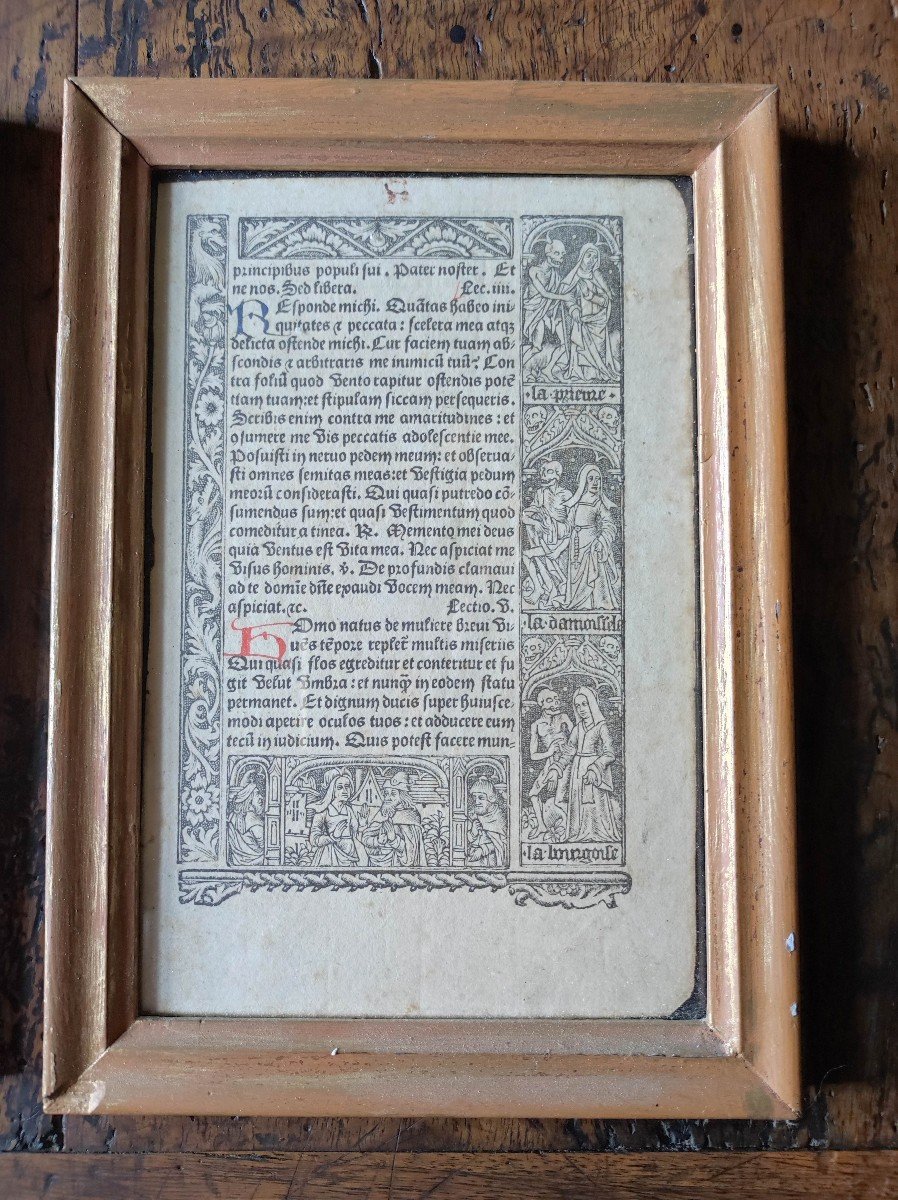 principibus populi sui . Pater noster . Et
ne nos. Sed libera. Lec. iiii.
REsponde michi. Quātas habeo ini-
quitates ⁊ peccata : scelera mea atqꝫ
delicta ostende michi. Cur faciem tuam ab-
scondis ⁊ arbitraris me inimicū tuū? Con
tra foliū quod vento rapitur ostendis potē
tiam tuam: et stipulam siccam persequeris.
Scribis enim contra me amaritudines : et
ↄsumere me vis peccatis adolescentie mee.
Posuisti in neruo pedem meum: et obserua-
sti omnes semitas meas: et vestigia pedum
meorū considerasti. Qui quasi putredo cō-
sumendus sum: et quasi vestimentum quod
comeditur a tinea. ℟. Memento mei deus
quia ventus est vita mea. Nec aspiciat me
visus hominis. ℣. De profundis clamaui
ad te domīe dn̄e exaudi vocem meam. Nec
aspiciat. ⁊c. Lectio. v.
HOmo natus de muliere breui vi-
uēs tēpore replet̄ multis miseriis
Qui quasi flos egreditur et conteritur et fu
git velut vmbra : et nunqꝫ in eodem statu
permanet. Et dignum ducis super huiusce-
modi aperire oculos tuos : et adducere eum
tecū in iudicium. Quis potest facere mun-
·la prieure·
·la damoiselle
·la bourgoise